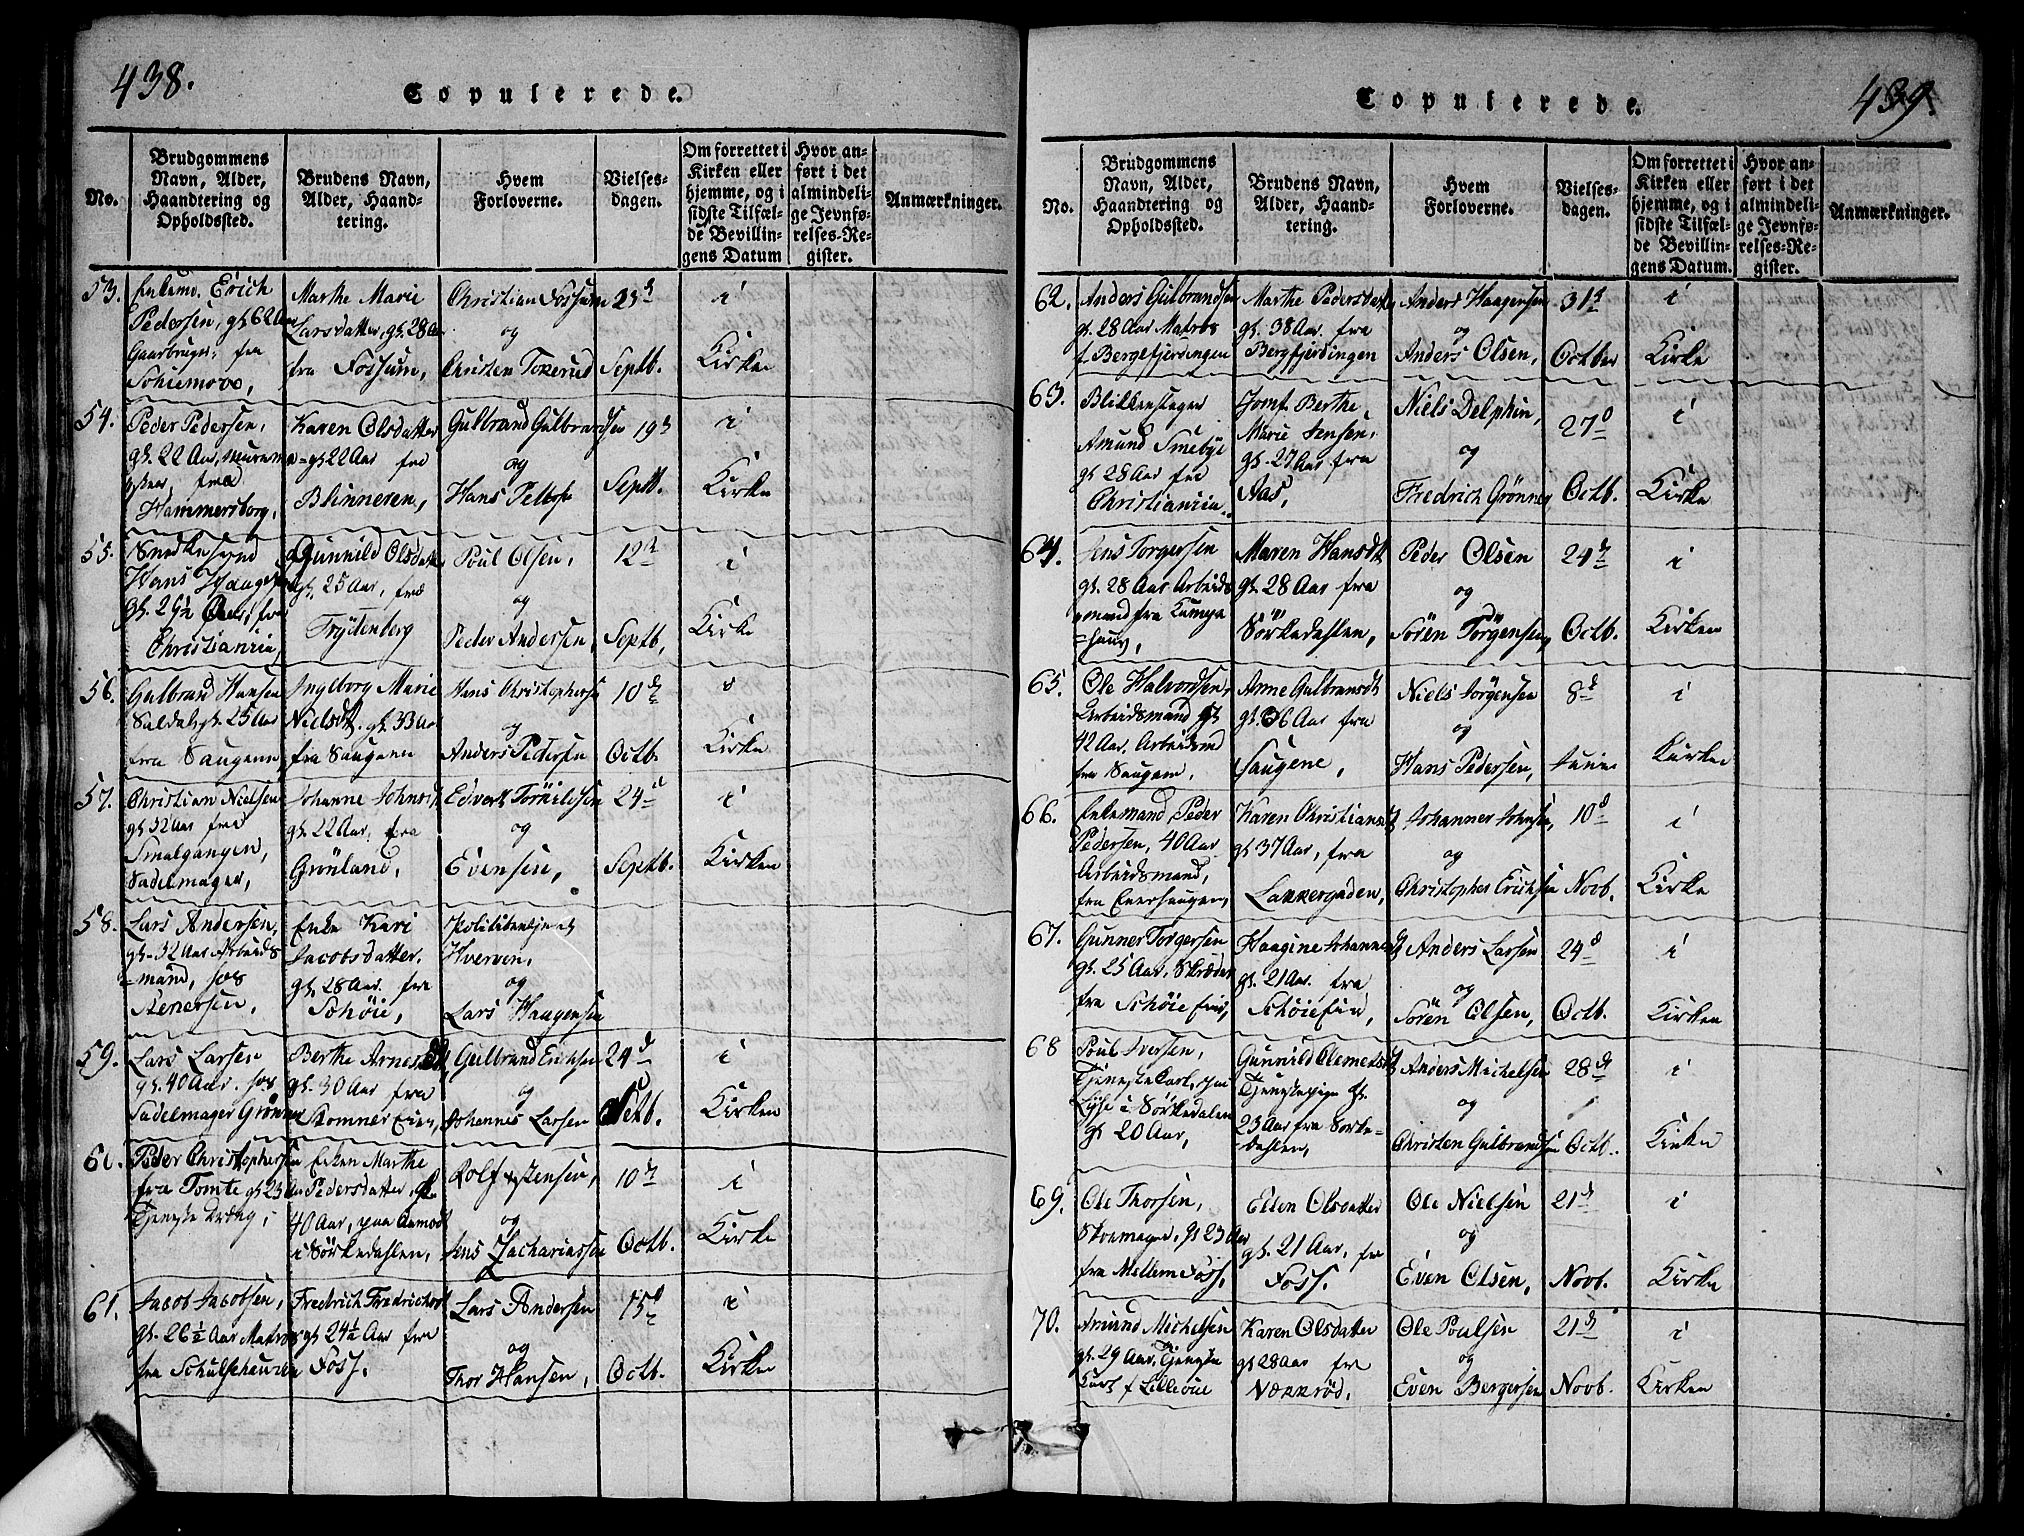 438.
Copulerede.
No.
Brudgommens
Navn, Alder,
Haandtering og
Opholdssted.
Brudens Navn,
Alder, Haand-
tering.
Hvem
Forloverne.
Vielses-
dagen.
Om forrettet i
Kirken eller
hjemme, og i
sidste Tilfæl-
de Bevillin-
gens Datum
Hvor an-
ført i det
almindeli-
ge Jevnfø-
relses-Re-
gister.
Anmærkninger.
53.
Enkemd. Erich
Pedersen, gl. 62 Aar
Gaardbruger fra
Marthe Marie
Larsdatter, gl. 28 Aar
fra Fossum,
Christian Fossum
og
Christen Tokerud
25d
Septb.
i
Kirken
54.
Peder Pedersen,
gl. 22 Aar,
fra
Hammersborg,
Karen Olsdatter
gl. 22 Aar fra
Blinneren,
Gulbrand Gulbrandsen
og
Hans
19d
Septb.
i
Kirke
55.
Hans
fra
Christiania,
Gunnild Olsdatter
gl. 25 Aar, fra
Poul Olsen,
og
Peder Andersen,
12te
Septb,
i
Kirke
56.
Gulbrand Hansen
gl. 25 Aar
fra Saugene
Ingborg Marie
Nielsdt. gl. 33 Aar
fra Saugene
Hans Christophersen
og
Anders Pedersen
10de
Octb.
Kirke
57.
Christian Nielsen
gl. 32 Aar fra
Smalgangen,
Sadelmager,
Johanne Johnsdt
gl. 22 Aar, fra
Grönland,
Edvert
og
Evensen,
24de
Septb.
i
Kirken
58.
Lars Andersen,
gl. 32 Aar Arbeids
=mand, hos
Stenersen,
Enke Kari
Jacobsdatter,
gl. 28 Aar. fra
Schöie,
Politibetjent
Hverven,
og
Lars Haagensen
59.
Lars Larsen
gl. 40 Aar. hos
Sadelmager Grønner
Berthe Arnesdt,
gl. 30 Aar fra
Gulbrand Erichsen
og
Johannes Larsen
24d
Octb.
i
Kirken
60.
Peder Christophersen
fra Tomte gl. 23 Aar
Enken Marthe
Pedersdatter, gl.
40 Aar, paa Aamodt
i Sörkedahlen,
Rolf
og
Jens Zachariassen
10de
Octb.
i
Kirke
61.
Jacob Jacobsen,
gl. 26½ Aar Matros
fra
gl. 24½ Aar fra
Foss.
Lars Andersen
og
Thor Hansen,
15d
Octb.
i
Kirke
439.
Copulerede.
No.
Brudgommens
Navn, Alder,
Haandtering og
Opholdssted.
Brudens Navn,
Alder, Haand-
tering.
Hvem
Forloverne.
Vielses-
dagen.
Om forrettet i
Kirken eller
hjemme, og i
sidste Tilfæl-
de Bevillin-
gens Datum.
Hvor an-
ført i det
almindeli-
ge Jevnfø-
relses-Re-
gister.
Anmærkninger.
62.
Anders Gulbrandsen
gl. 28 Aar Matros
f. Bergefjerdingen
Marthe Pedersdatter
gl. 38 Aar. fra
Bergfjerdingen
Anders Haagensen
og
Anders Olsen,
31d
Octber
i
Kirke
63.
Blikkenslager
Amund Smebye
gl. 28 Aar fra
Christiania.
Jomf. Berthe
Marie Jensen,
gl. 27 Aar fra
Aas,
Niels Delphin,
og
Fredrich Grönner,
27d
Octb.
i
Kirke
64.
Jens Torgersen
gl. 28 Aar Arbeids
=mand fra Kampe
=houg,
Maren Hansdt
gl. 28 Aar fra
Sörkedahlen,
Peder Olsen
og
Sören Torgensen,
24de
Octb.
i
Kirken
65.
Ole Halvordsen,
Arbeidsmand gl.
42 Aar, Arbeidsmd
fra Saugene,
Anne Gulbransdt
gl. 36 Aar fra
Saugene,
Niels Jörgensen
og
Hans Pedersen,
8d
i
Kirken
66.
Enkemand Peder
Pedersen, 40 Aar
Arbeidsmand,
fra Enerhaugen,
Karen Christiansdt
gl. 37 Aar, fra
Lakkergaden,
Johannes Johnsen,
og
Christopher Erichsen
10d
Novb.
i
Kirke
67.
Gunner Torgersen
gl. 25 Aar, Skræder
fra Schöie Eier,
Haagine Johannesdt
gl. 21 Aar. fra
Schöie Eier,
Anders Larsen
og
Sören Olsen,
24d
Octb.
i
Kirken
68
Poul Iversen,
Tjenestekarl, paa
Lyse i Sörkedalen
gl 20 Aar,
Gunnild Clemetsdt
Tjenestepige gl.
23 Aar fra Sörke-
dahlen,
Anders Michelsen
og
Christen Gulbrandsen
28de
Octb.
i
Kirke
69.
Ole Thorsen,
Skoemager, gl 23 Aar
fra Mellem Foss,
Eden Olsdatter
gl. 21 Aar, fra
Foss.
Ole Nielsen
og
Even Olsen,
21de
Novb.
i
Kirke
70.
Amund Michelsen
gl. 29 Aar, Tjeneste
Karl f. Lilleöue
Karen Olsdatter
gl 28 Aar fra
Nækkröd,
Ole Poulsen
og
Even Bergersen
21de
Novb.
i
Kirken